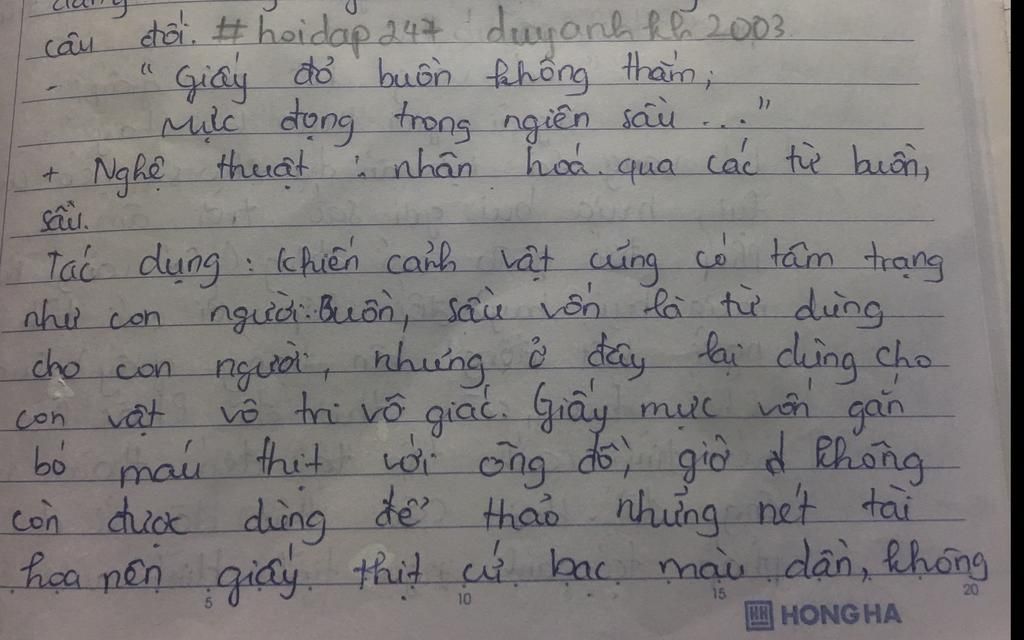 câu đối. #hoidap247 duyanhkh2003
- "Giấy đỏ buồn không thắm;
Mực đọng trong ngiên sầu..."
+ Nghệ thuật : nhân hoá qua các từ buồn,
sầu.
Tác dụng : khiến cảnh vật cũng có tâm trạng
như con người. Buồn, sầu vốn là từ dùng
cho con người, nhưng ở đây lại dùng cho
con vật vô tri vô giác. Giấy mực vốn gắn
bó máu thịt với ông đồ, giờ không
còn được dùng để thảo những nét tài
hoa nên giấy thịt cứ bạc màu dần, không
5 10 15 20
HH HONG HA